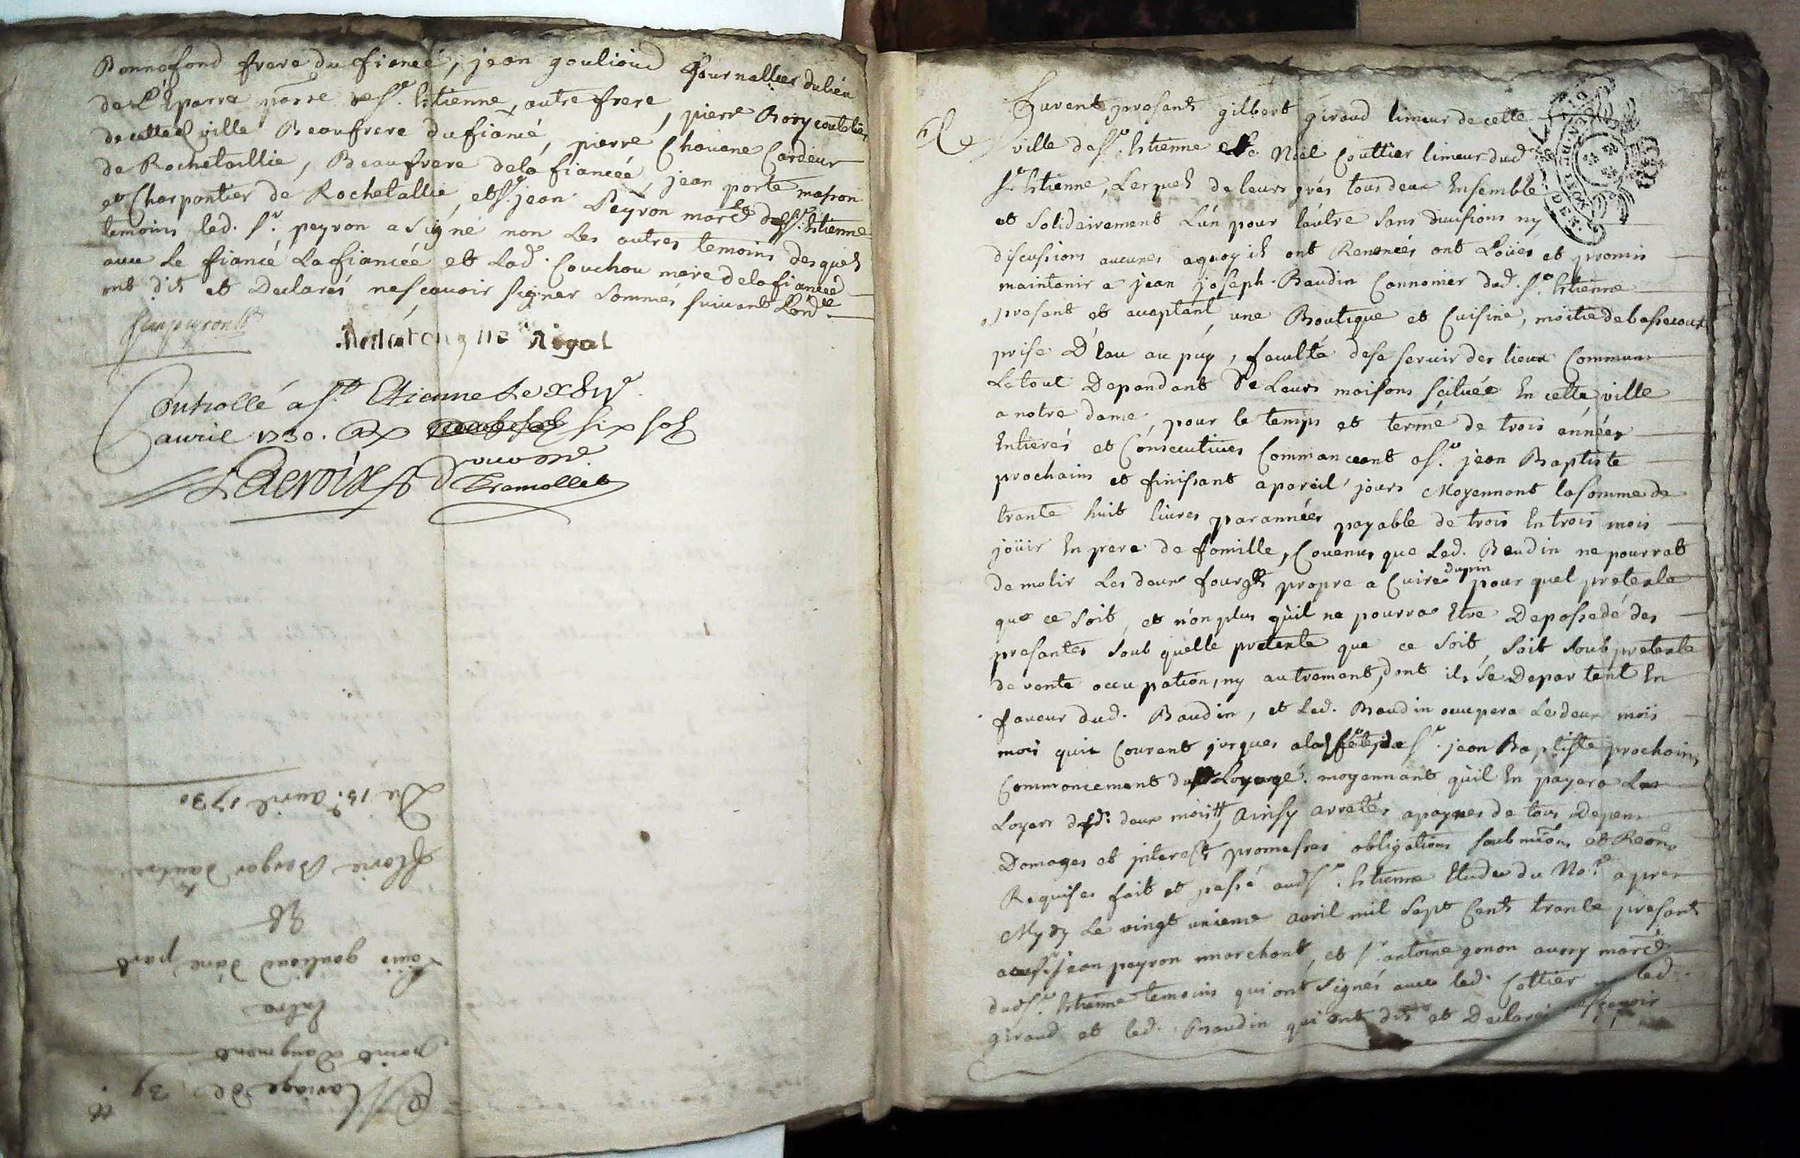 Bonnefond frere du fiancé, jean goulioud fournallier du lieu
de L'Eparre parr.e de St. Estienne, autre frere, pierre Bory coutellier
de cette ville Beaufrere du fiancé, pierre Chovene Cardeur
de Rochetaillie, Beaufrere de la fiancée, jean porte masson
et Charpentier de Rochetallie, et Sr. jean Peyron march.d de St. Estienne
temoins led. Sr. peyron a signé non les autres temoins desquels
avec le fiancé la fiancée et lad. Couchou mere de la fiancée
ont dit et declarés ne scavoir signer sommés suivant l'ord.ce
jean peyron
Rigal
Controllé a St. Etienne le
avril 1730. six sols
Delacroix
Tramollet
Mariage de 39
Entre
Louis goulioud d'une part
Et
florie Berger d'autre
Du 13e avril 1730
furent presents gilbert giraud limeur de cette
ville de St. Estienne et Noel Couttier limeur dud.
St. Estienne, Lesquels de leurs grés tous deux Ensemble
et solidairement L'un pour l'autre sans divisions ny
discussions aucunes a quoy ils ont Renoncés ont Loües et promis
maintenir a jean joseph Baudin Cannonier dud. St. Estienne
present et acceptant, une Boutique et Cuisine, moitié de bassecourt
prise D'eau au puy, faculté de se servir des lieux Communs
Le tout Dependant de Leurs maisons scituée En cette ville
a notre dame, pour le temps et terme de trois années
Entieres et Consecutives Commanceant a St. jean Baptiste
prochains et finissant a pareil jours Moyennant la somme de
trante huit livres par années payable de trois En trois mois
joüir En pere de famille, Covenus que Led. Baudin ne pourrat
demolir Les deux fourgs propre a Cuire dupin pour quel pretexte
que ce soit, et non plus qu'il ne pourra Etre Depossedé des
presantes soub quelle pretexte que ce soit, soit soub pretexte
de vente occupation, ny autrement, dont ils se Departent En
faveur dud. Baudin, et Led. Baudin occupera Le deux mois
mois quil Courent jusques a la feste de St. jean Baptiste prochain,
Commencement du Louage. moyennant qu'il En payera Les
Loyers desd. deux mois, Ainsy arretés a paynes de tous Depens
Domages et jnterests promesses obligations soubmions et Reon.
Requises fait et passé aud. St. Estienne Etude du No.re apres
Mydy Le vingt unieme avril mil sept Cents trante presents
jean peyron marchant, et Sr. antoine gonon aussy march.d
dud. St. Estienne temoins qui ont signés avec led. Cottier led.
giraud et led. Baudin qui ont dit et Declarés scavoir